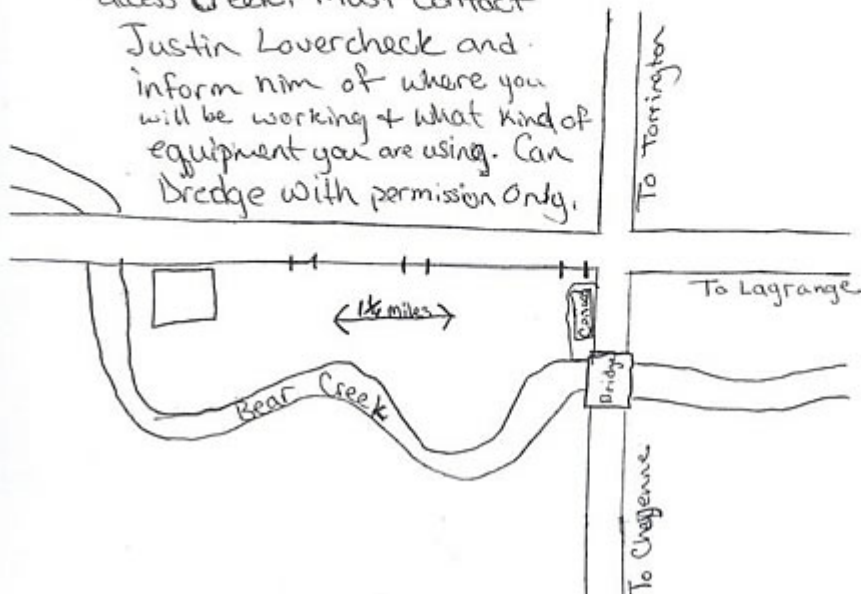 access Creek. Must contact
Justin Lovercheck and
inform him of where you
will be working + what kind of
equipment you are using. Can
Dredge with permission Only.
To Torrington
To Lagrange
1¼ miles
Corral
Bridge
Bear Creek
To Cheyenne